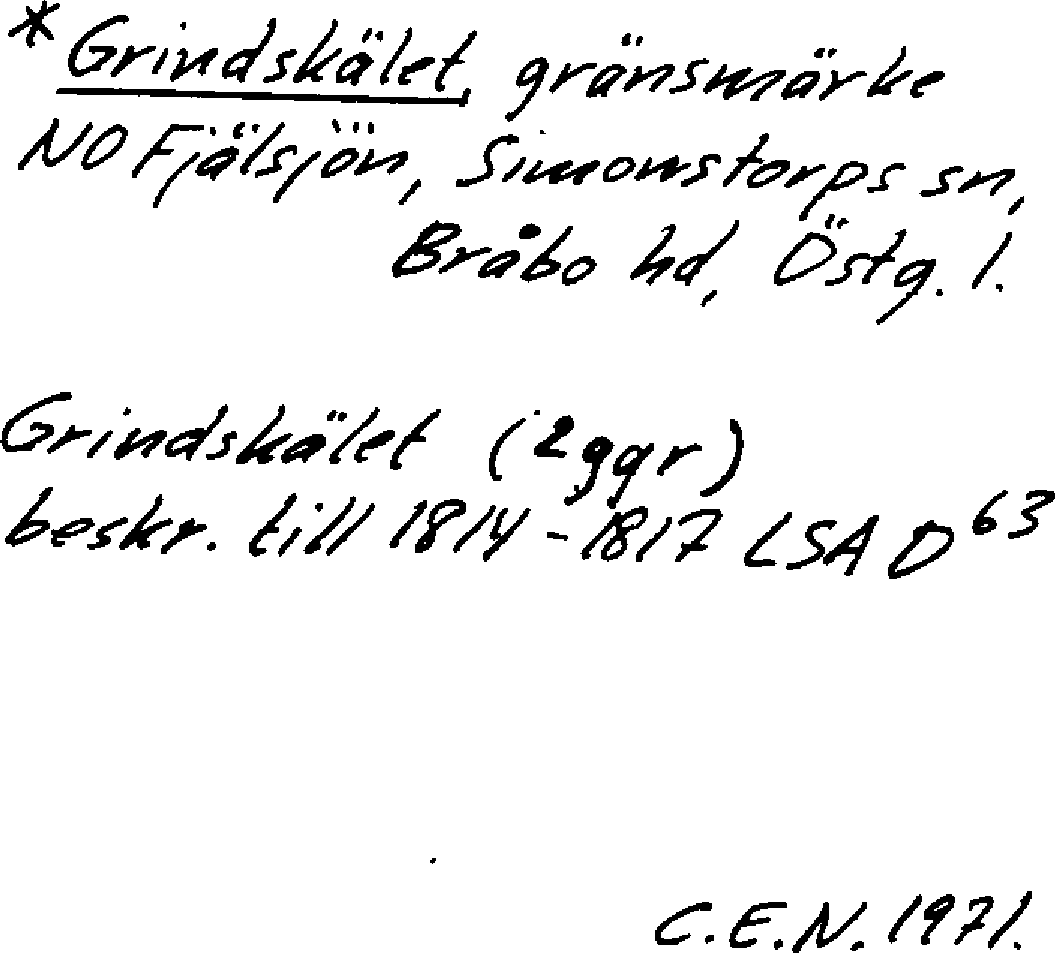 * Grindskälet, gränsmärke
NO Fjälsjön, Simonstorps sn,
Bråbo hd, Östg. l.
Grindskälet (2 ggr)
beskr. till 1814-1817 LSA D63
C.E.N. 1971.